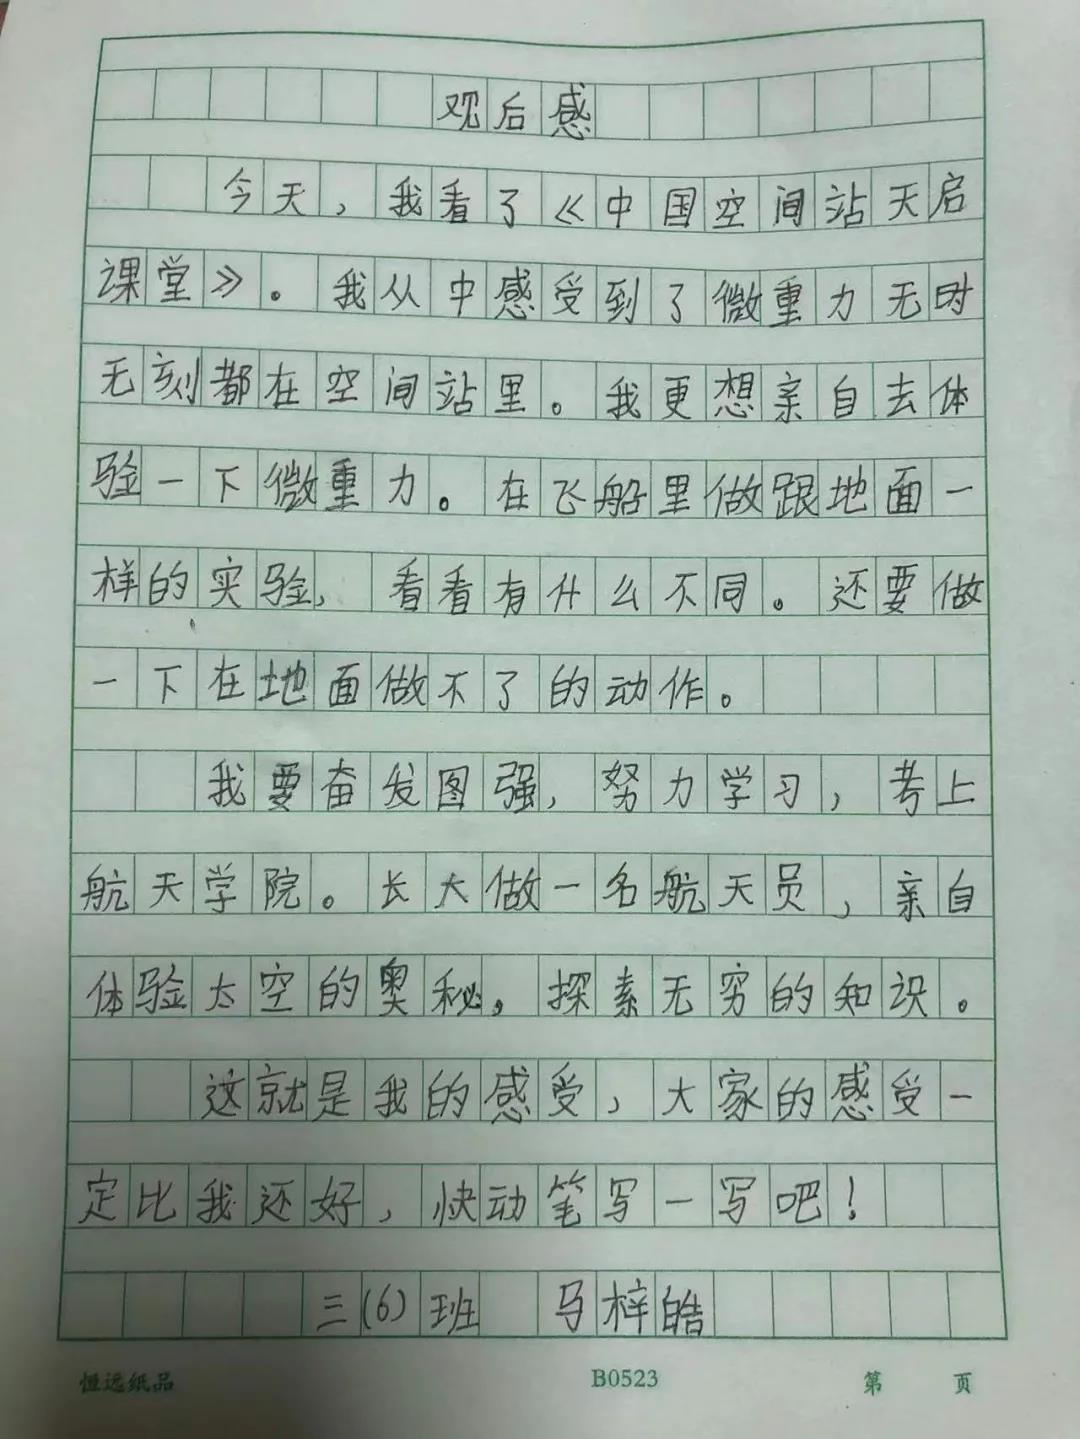 观后感
今天，我看了《中国空间站天启
课堂》。我从中感受到了微重力无时
无刻都在空间站里。我更想亲自去体
验一下微重力。在飞船里做跟地面一
样的实验，看看有什么不同。还要做
一下在地面做不了的动作。
我要奋发图强，努力学习，考上
航天学院。长大做一名航天员，亲自
体验太空的奥秘。探索无穷的知识。
这就是我的感受，大家的感受一
定比我还好，快动笔写一写吧！
三(6)班 马梓皓
恒远纸品 B0523 第 页